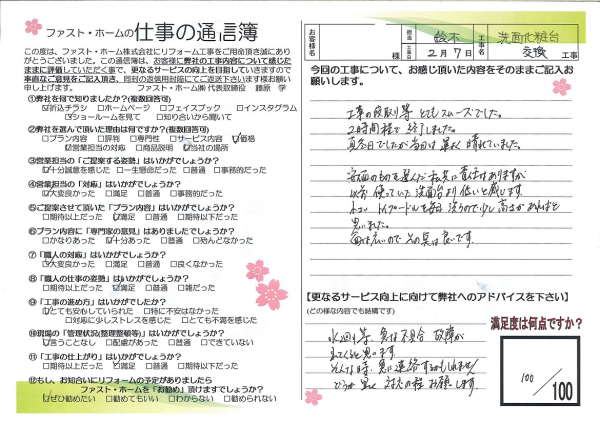 ファスト・ホームの仕事の通信簿
この度は、ファスト・ホーム株式会社にリフォーム工事をご用命頂き誠にあり
がとうございました。この通信簿は、お客様に弊社の工事内容について感じた
ままに評価していただく事で、更なるサービスの向上を目指していきますので
率直なご意見をご記入頂き、同封の返信用封筒にてご返送下さいます様お願い
申し上げます。 ファスト・ホーム㈱ 代表取締役 藤原 学
①弊社を何で知りましたか?(複数回答可)
☑折込チラシ □ホームページ □フェイスブック □インスタグラム
☑ショールームを見て □知り合いから聞いて
②弊社を選んで頂いた理由は何ですか?(複数回答可)
□プラン内容 □評判 □専門性 □サービス内容 ☑価格
☑営業担当の対応 □商品説明 ☑当社の場所
③営業担当の「ご提案する姿勢」はいかがでしょうか?
☑十分誠意を感じた □一生懸命だった □普通 □事務的だった
④営業担当の「対応」はいかがでしょうか?
☑大変良かった □満足 □普通 □事務的だった
⑤ご提案させて頂いた「プラン内容」はいかがでしょうか?
□期待以上だった ☑満足 □普通 □期待以下だった
⑥プラン内容に「専門家の意見」はありましたでしょうか?
□かなりあった ☑十分あった □普通 □殆んどなかった
⑦「職人の対応」はいかがでしょうか?
☑大変良かった □満足 □普通 □良くなかった
⑧「職人の仕事の姿勢」はいかがでしょうか?
□期待以上だった ☑満足 □普通 □雑だった
⑨「工事の進め方」はいかがでしたか?
☑とても安心していられた □特に不安はなかった
□対応に少しストレスを感じた □とても不満を感じた
⑩現場の「管理状況(整理整頓等)」はいかがでしょうか?
☑言うことなし □配慮があった □普通 □できていない
⑪「工事の仕上がり」はいかがでしょうか?
□期待以上だった ☑満足 □普通 □期待以下だった
⑫もし、お知合いにリフォームの予定がありましたら
ファスト・ホームを「お勧め」頂けますでしょうか?
☑ぜひ勧めたい □勧めてもいい □わからない □勧められない
お客様名 様 担当 鈴木 工事日 2月7日 工事名 洗面化粧台交換 工事
今回の工事について、お感じ頂いた内容をそのままご記入お
願いします。
工事の段取り等 とてもスムーズでした。
2時間程で 終了しました。
真冬日でしたが当日は運よく 晴れていました。
以前 使っていた洗面台より 低いと感じます。
思いました。
【更なるサービス向上に向けて弊社へのアドバイスを下さい】
(どの様な内容でも結構です)
水回り等、急な不具合 故障が
出てくると思います
そんな時、急に連絡するかもしれません
お願いします。
満足度は何点ですか?
100
/100